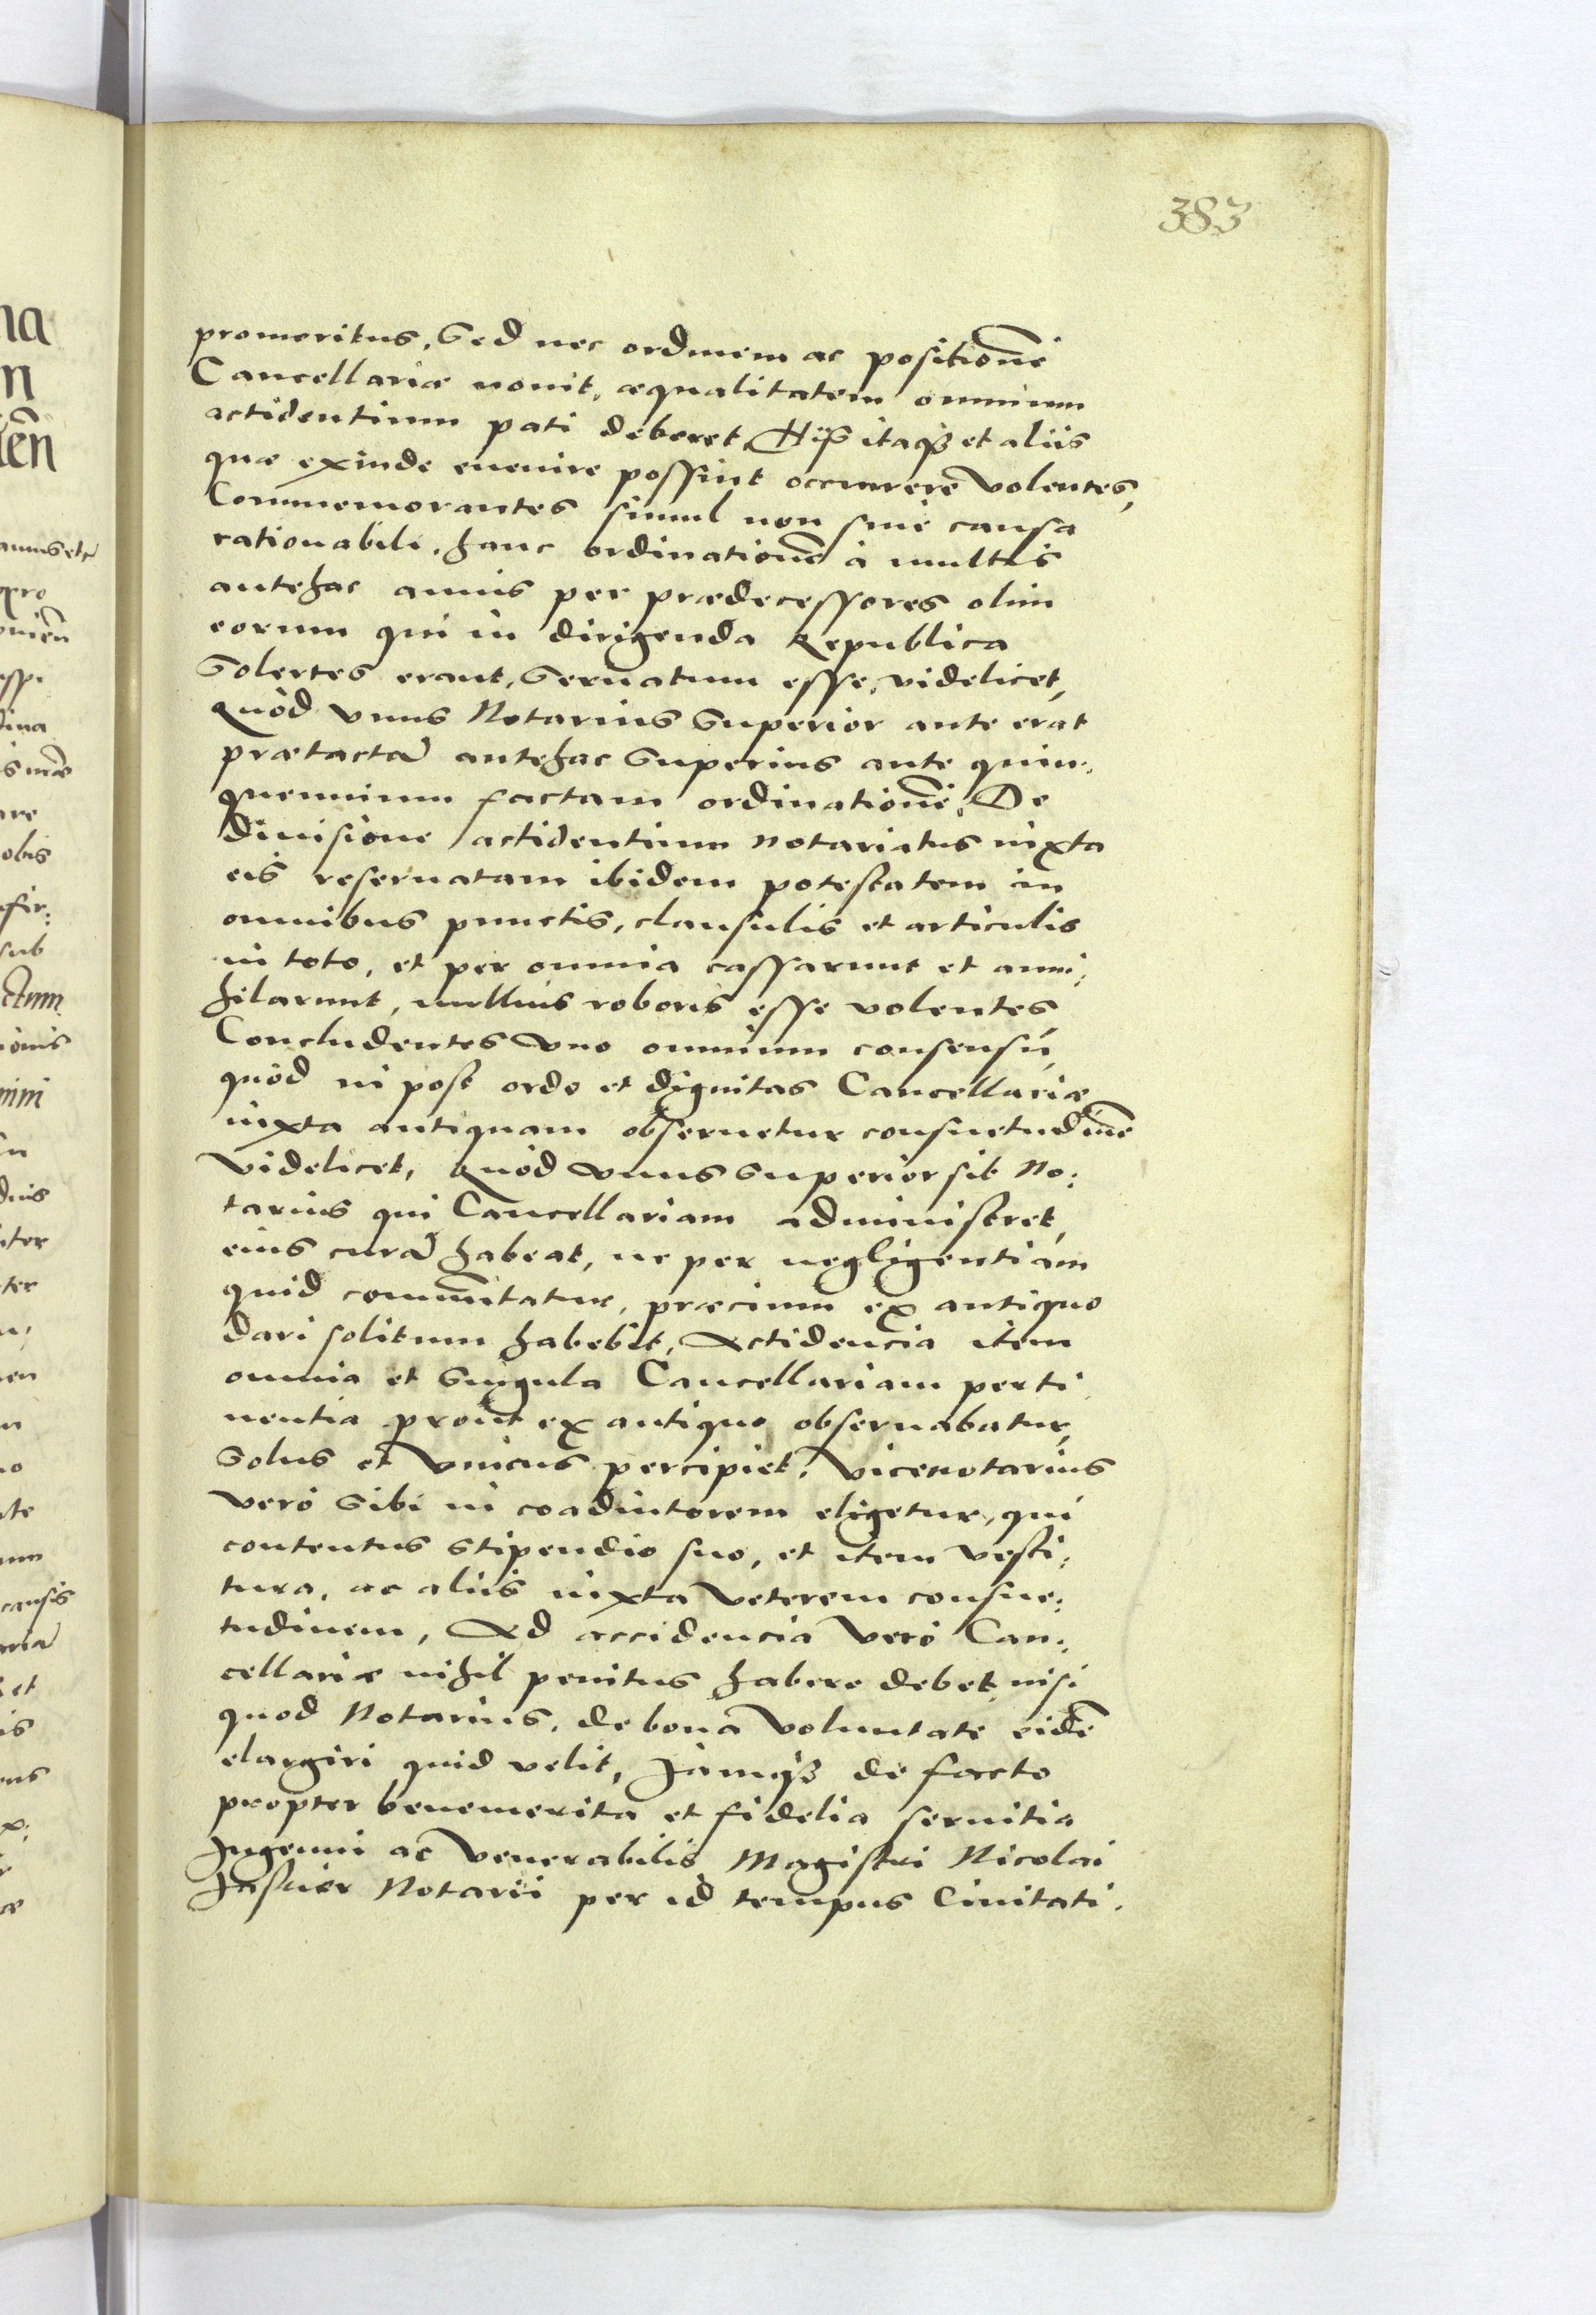 383
promeritus, Sed nec ordinem ac positionē
Cancellariæ nouit, æqualitatem omnium
actidentium pati deberet, Hijs itaqꝫ et aliis
quæ exinde euenire possint occurrere volentes,
Commemorantes simul non sine causa
rationabili, hanc ordinationē à multis
antehac annis per prædecessores olim
eorum qui in dirigenda Republica
Solertes erant, Seruatum esse, videlicet,
Quòd vnus Notarius Superior ante erat
prætactā antehac Superius ante quin:
quennium factam ordinationē, De
diuisione actidentium notariatus iuxta
eis reseruatam ibidem potestatem in
omnibus punctis, clausulis et articulis
in toto, et per omnia cassarunt et anni:
hilarunt, nullius roboris esse volentes,
Concludentes vno omnium consensu,
quòd in post ordo et dignitas Cancellariæ
iuxta antiquam obseruetur consuetudinē
videlicet, Quòd vnus Superior sit No:
tarius qui Cancellariam administret,
eius curā habeat, ne per negligentiam
quid com̄itatur, præcium ex antiquo
dari solitum habebit, Actidencia item
omnia et Singula Cancellariam perti
nentia prout ex antiquo obseruabatur,
Solus et Vnicus percipiet, Vicenotarius
verò Sibi in coadiutorem eligetur, qui
contentus Stipendio suo, et item vesti:
tura, ac aliis iuxta veterem consue:
tudinem, Ad accidencia verò Can:
cellariæ nihil penitus habere debet nisi
quod Notarius, de bona voluntate eidē
elargiri quid velit, Jamqꝫ de facto
propter benemerita et fidelia seruitia
Ingenui ac Venerabilis Magistri Nicolai
Notarii per id tempus Ciuitati.